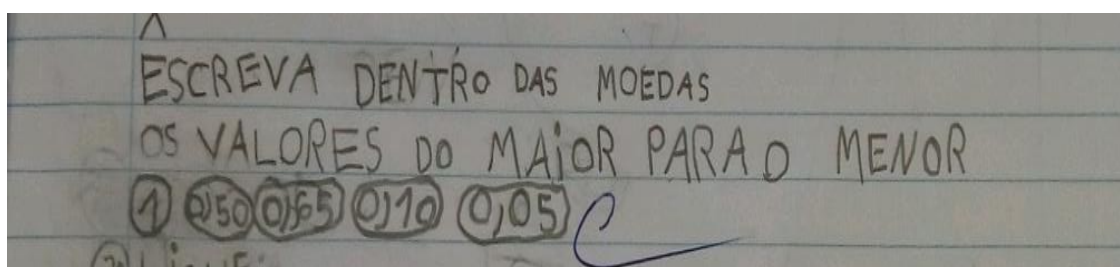 ESCREVA DENTRO DAS MOEDAS
OS VALORES DO MAIOR PARA O MENOR
1 0,50 0,65 0,10 0,05